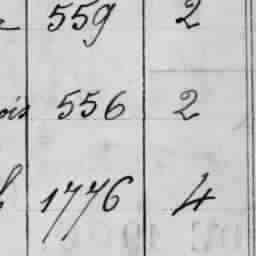 559 2
556 2
1776 4